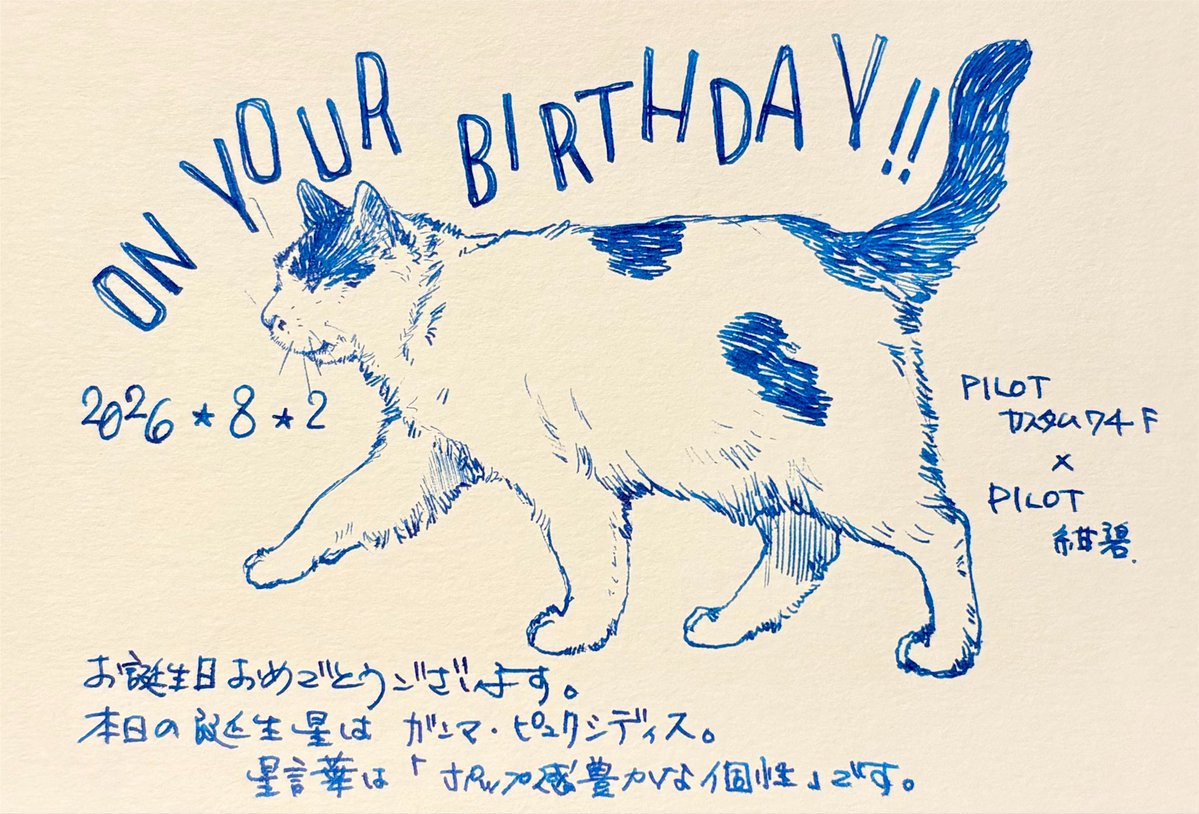 ON YOUR BIRTHDAY!!
2026★8★2
PILOT
カスタム74 F
×
PILOT
紺碧.
お誕生日おめでとうございます。
本日の誕生星は ガンマ・ピュクシディス。
星言葉は「ポップ感豊かな個性」です。